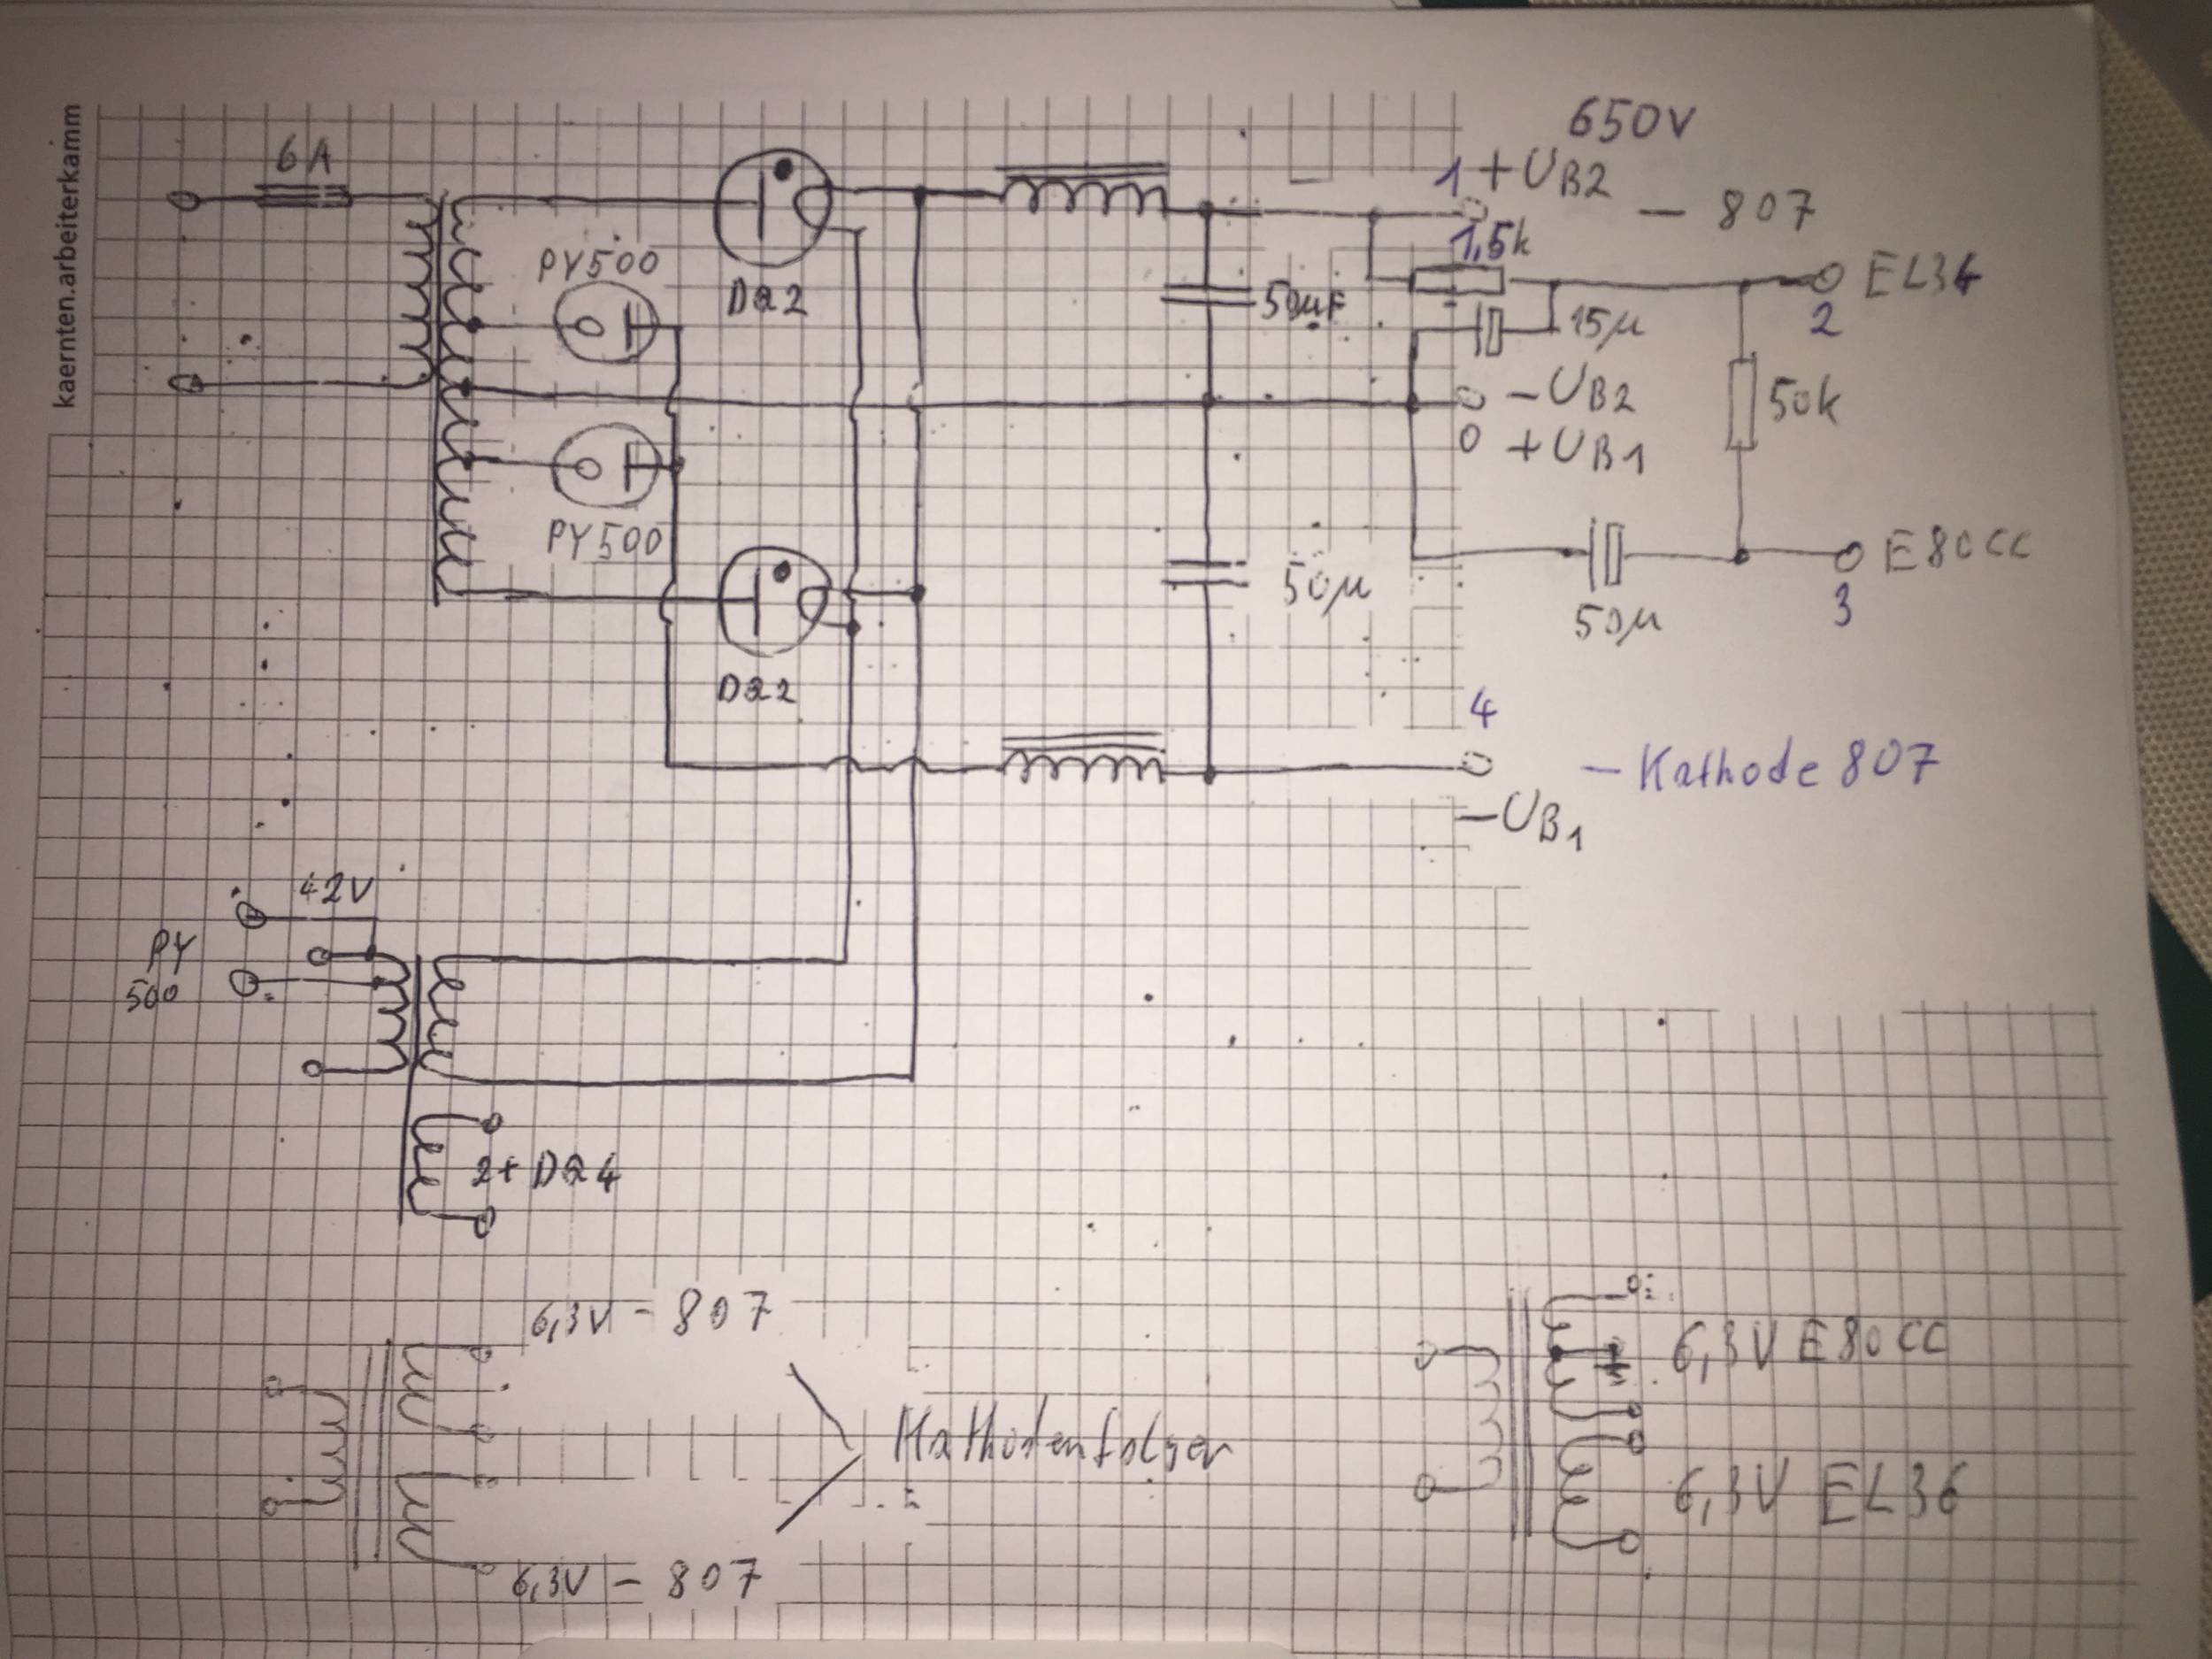 kaernten.arbeiterkamm
6A
650V
1 +UB2
— 807
PY500
DQ2
50µF
1,5k
EL34
2
15µ
-UB2
0 +UB1
50k
PY500
DQ2
50µ
50µ
E80CC
3
4
- Kathode 807
-UB1
42V
PY
500
2+ DQ4
6,3V - 807
Kathodenfolger
6,3V - 807
6,3V E80CC
6,3V EL36